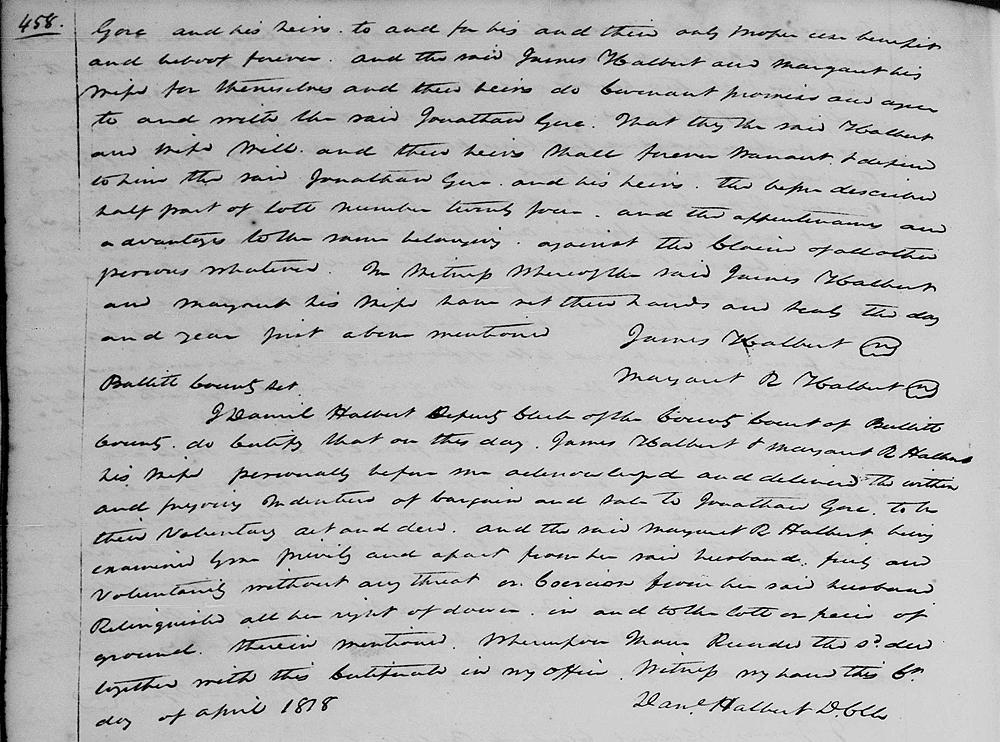 458.
Gore and his heirs. to and for his and their only proper use benefit
and behoof forever. and the said James Halbert and Margaret his
Wife for themselves and their heirs do Covenant promise and agree
to and with the said Jonathan Gore. That they the said Halbert
and Wife Will. and their heirs Shall forever Warrant & defend
to him the said Jonathan Gore. and his heirs. the before described
half part of lott number twenty four. and the appurtenances and
advantages to the same belonging. against the Claim of all other
persons whatever. In Witness Whereof the said James Halbert
and Margaret his Wife have set their hands and seals the day
and year first above mentioned James Halbert
Margaret R Halbert
Bullitt County Sct
I Daniel Halbert Deputy Clerk of the County Court of Bullitt
County. do Certify that on this day. James Halbert & Margaret R Halbert
his Wife personally before me acknowledged and delivered the within
and foregoing Indenture of bargain and sale to Jonathan Gore. to be
their Voluntary act and deed. and the said Margaret R Halbert being
examined by me privily and apart from her said husband. freely and
Voluntarily without any threat or Coercion from her said husband
Relinquished all her right of dower. in and to the lott or peice of
ground. therein mentioned. Whereupon I have Recorded the sd. deed
together with this Certificate in my office. Witness my hand this 6th
day of April 1818 Danl. Halbert D. Clk